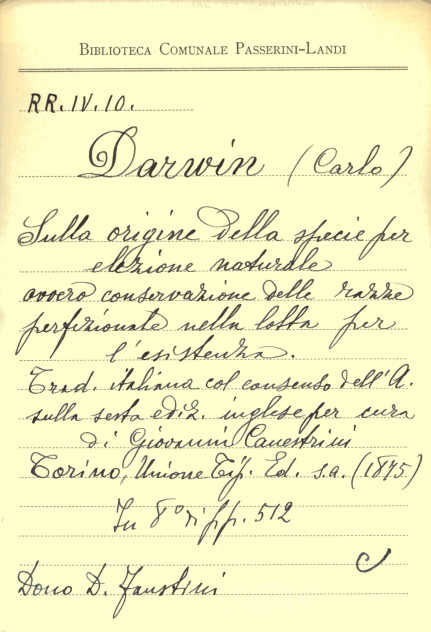 BIBLIOTECA COMUNALE PASSERINI-LANDI
RR.IV.10.
Darwin (Carlo)
Sulla origine della specie per
elezione naturale
ovvero conservazione delle razze
perfezionate nella lotta per
l'esistenza.
Trad. italiana col consenso dell'A.
sulla sesta ediz. inglese per cura
di Giovanni Canestrini
Torino, Unione Tip. Ed. s.a. (1875)
In 8° di pp. 512
Dono D. Faustini